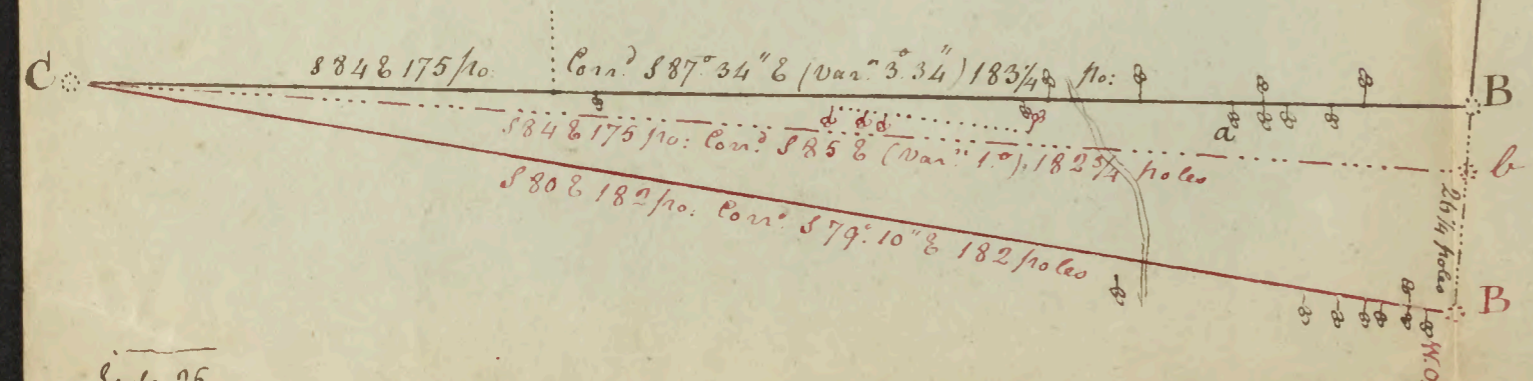 C
S 84 E 175 po.
Corr.d S 87.° 34" E (Var.n 3.° 34") 183 1/4 po:
B
a
d d d
S 84 E 175 po: Corr.d S 85 E (Var.n 1.°). 182 3/4 poles
b
S 80 E 182 po: Corr.d S 79.° 10" E 182 poles
26 1/4 poles
B
W.O